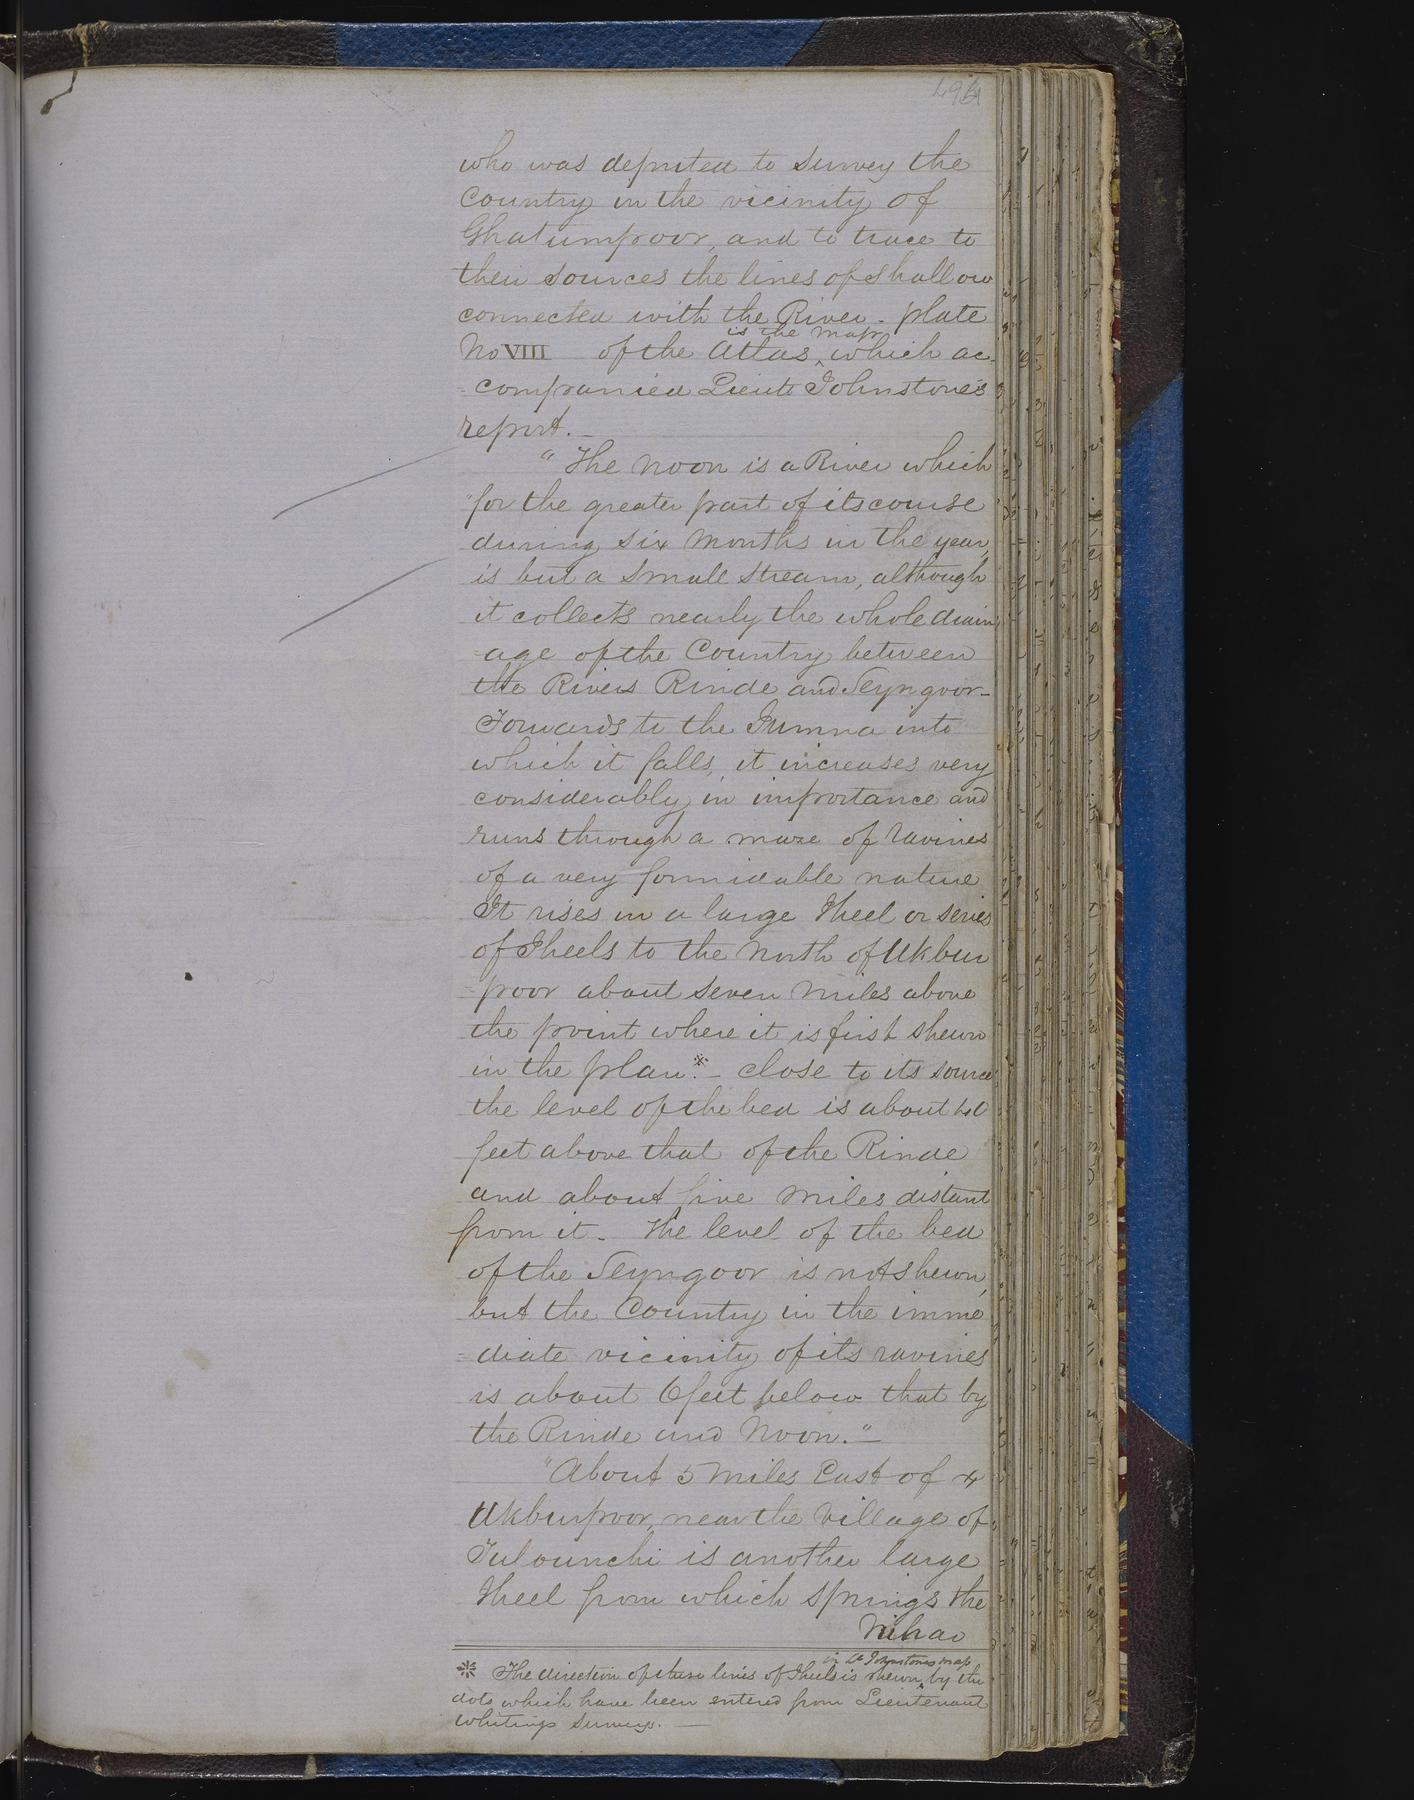 who was deputed to survey the
Country in the vicinity of
Ghatumpoor, and to trace to
their sources the lines of shallow
connected with the River. plate
is the map
No VIII of the Atlas, ^ which ac-
=companied Lieut Johnstone's
report. _
"The Noon is a River which
"for the greater part of its course
during six months in the year,
is but a small stream, although
it collects nearly the whole drain
=age of the Country between
the Rivers Rinde and Seyngoor_
Towards to the Jumna into
which it falls, it increases very
considerably in importance and
runs through a maze of ravines
of a very formidable nature
It rises in a large Jheel or series
of Jheels to the North of Ukbur
=poor about seven miles above
the point where it is first shewn
in the plan.※_ close to its source
the level of the bed is about 40
feet above that of the Rinde
and about five miles distant
from it_ The level of the bed
of the Seyngoor is not shewn,
but the Country in the imme
=diate vicinity of its ravines
is about 6 feet below that by
the Rinde and Noon."_
"About 5 miles East of
Ukburpoor, near the Village of
Tulounchi is another large
Jheel from which springs the
Nihao
in Lt Johnstones map
※ The direction of these lines of Jheels is shewn ^ by the
dots which have been entered from Lieutenant
Whitings surveys. _